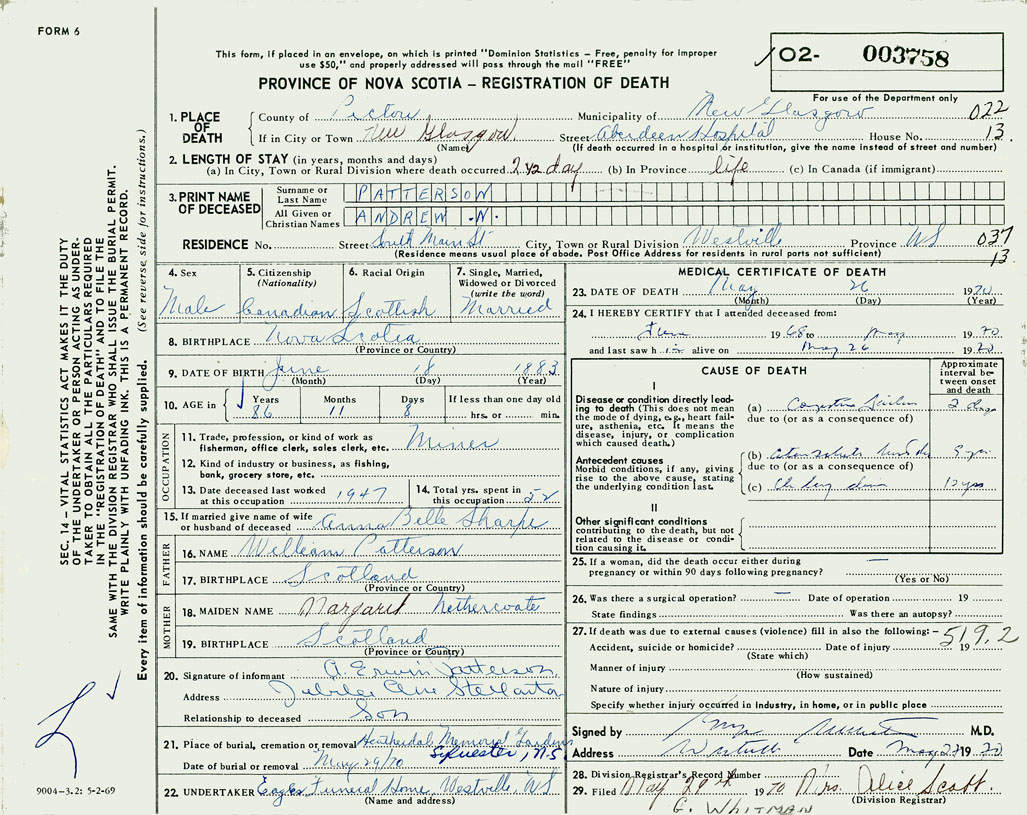 FORM 6
This form, if placed in an envelope, on which is printed "Dominion Statistics – Free, penalty for improper
use $50," and properly addressed will pass through the mail "FREE"
PROVINCE OF NOVA SCOTIA – REGISTRATION OF DEATH
02- 003758
For use of the Department only
1. PLACE OF DEATH
County of Pictou Municipality of New Glasgow 022
If in City or Town New Glasgow Street Aberdeen Hospital House No. 13.
(Name) (If death occurred in a hospital or institution, give the name instead of street and number)
2. LENGTH OF STAY (in years, months and days)
(a) In City, Town or Rural Division where death occurred 2 1/2 day (b) In Province life (c) In Canada (if immigrant)
3. PRINT NAME OF DECEASED
Surname or Last Name PATTERSON
All Given or Christian Names ANDREW .N.
RESIDENCE No. Street South Main St City, Town or Rural Division Westville Province NS 037
(Residence means usual place of abode. Post Office Address for residents in rural parts not sufficient) 13.
4. Sex Male
5. Citizenship (Nationality) Canadian
6. Racial Origin Scottish
7. Single, Married, Widowed or Divorced (write the word) Married
8. BIRTHPLACE Nova Scotia
(Province or Country)
9. DATE OF BIRTH June 18 1883
(Month) (Day) (Year)
10. AGE in Years 86 Months 11 Days 8 If less than one day hrs. or min.
OCCUPATION
11. Trade, profession, or kind of work as
fisherman, office clerk, sales clerk, etc. Miner
12. Kind of industry or business, as fishing,
bank, grocery store, etc.
13. Date deceased last worked at this occupation 1947
14. Total yrs. spent in this occupation 52
15. If married give name of wife
or husband of deceased Anna Belle Sharpe
FATHER
16. NAME William Patterson
17. BIRTHPLACE Scotland
(Province or Country)
MOTHER
18. MAIDEN NAME Margaret Nethercoate
19. BIRTHPLACE Scotland
(Province or Country)
20. Signature of informant A. Erwin Patterson
Address Jubilee Ave Stellarton
Relationship to deceased Son
21. Place of burial, cremation or removal Heatherdal Memorial Gardens
Sylvester, N.S.
Date of burial or removal May 29/70
22. UNDERTAKER Eagles Funeral Home Westville, NS
(Name and address)
MEDICAL CERTIFICATE OF DEATH
23. DATE OF DEATH May 26 1970
(Month) (Day) (Year)
24. I HEREBY CERTIFY that I attended deceased from:
June 1968 to May 1970
and last saw him alive on May 26 1970
CAUSE OF DEATH
Approximate interval between onset and death
I
Disease or condition directly leading to death (This does not
mean the mode of dying, e.g., heart failure, asthenia, etc. It means the
disease, injury, or complication
which caused death.)
(a) 2 days
due to (or as a consequence of)
Antecedent causes
Morbid conditions, if any, giving
rise to the above cause, stating
the underlying condition last.
(b)
due to (or as a consequence of)
(c) 10 yrs
II
Other significant conditions
contributing to the death, but not
related to the disease or condition
causing it.
25. If a woman, did the death occur either during
pregnancy or within 90 days following pregnancy? —
(Yes or No)
26. Was there a surgical operation? — Date of operation 19
State findings Was there an autopsy?
27. If death was due to external causes (violence) fill in also the following: – 519.2
Accident, suicide or homicide? Date of injury 19
(State which)
Manner of injury
(How sustained)
Nature of injury
Specify whether injury occurred in industry, in home, or in public place
Signed by M.D.
Address Westville Date May 27 1970
28. Division Registrar's Record Number
29. Filed May 29th 1970 Mrs. Alice Scott.
(Division Registrar)
G. WHITMAN
SEC. 14 – VITAL STATISTICS ACT MAKES IT THE DUTY
OF THE UNDERTAKER OR PERSON ACTING AS UNDERTAKER
TO OBTAIN ALL THE PARTICULARS REQUIRED
IN THE "REGISTRATION OF DEATH" AND TO FILE THE
SAME WITH THE DIVISION REGISTRAR WHO SHALL ISSUE THE BURIAL PERMIT.
WRITE PLAINLY WITH UNFADING INK. THIS IS A PERMANENT RECORD.
Every item of information should be carefully supplied. (See reverse side for instructions.)
9004-3.2: 5-2-69